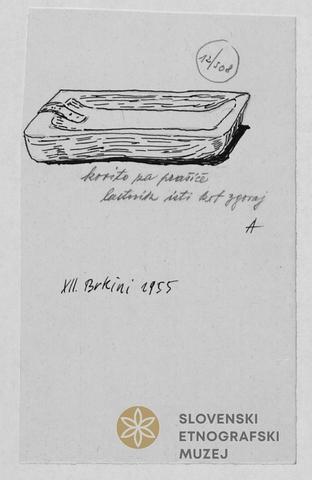 12/508
korito za prašiče
lastnik isti kot zgoraj
A
XII. Brkini 1955
SLOVENSKI
ETNOGRAFSKI
MUZEJ